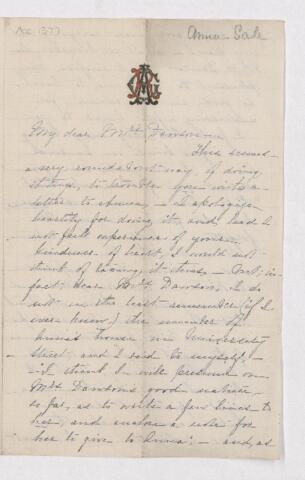 Acc 1377
Anna Gale
My dear Mrs Dawson —
This seems
a very roundabout way, of doing
things, to trouble you with a
letter to Anna, — I apologise
heartily for doing it, and had I
not felt experience of your
kindness of heart, I would not
think of taking it thus — But, in
fact, dear Mrs Dawson, I do
not in the least remember (if I
ever knew) the number of
Anna's house in University
Street, and I said to myself, —
"I think I will presume on
Mrs Dawson's good nature,
so far, as to write a few lines to
her, and enclose a note for
her to give to Anna": — and, as